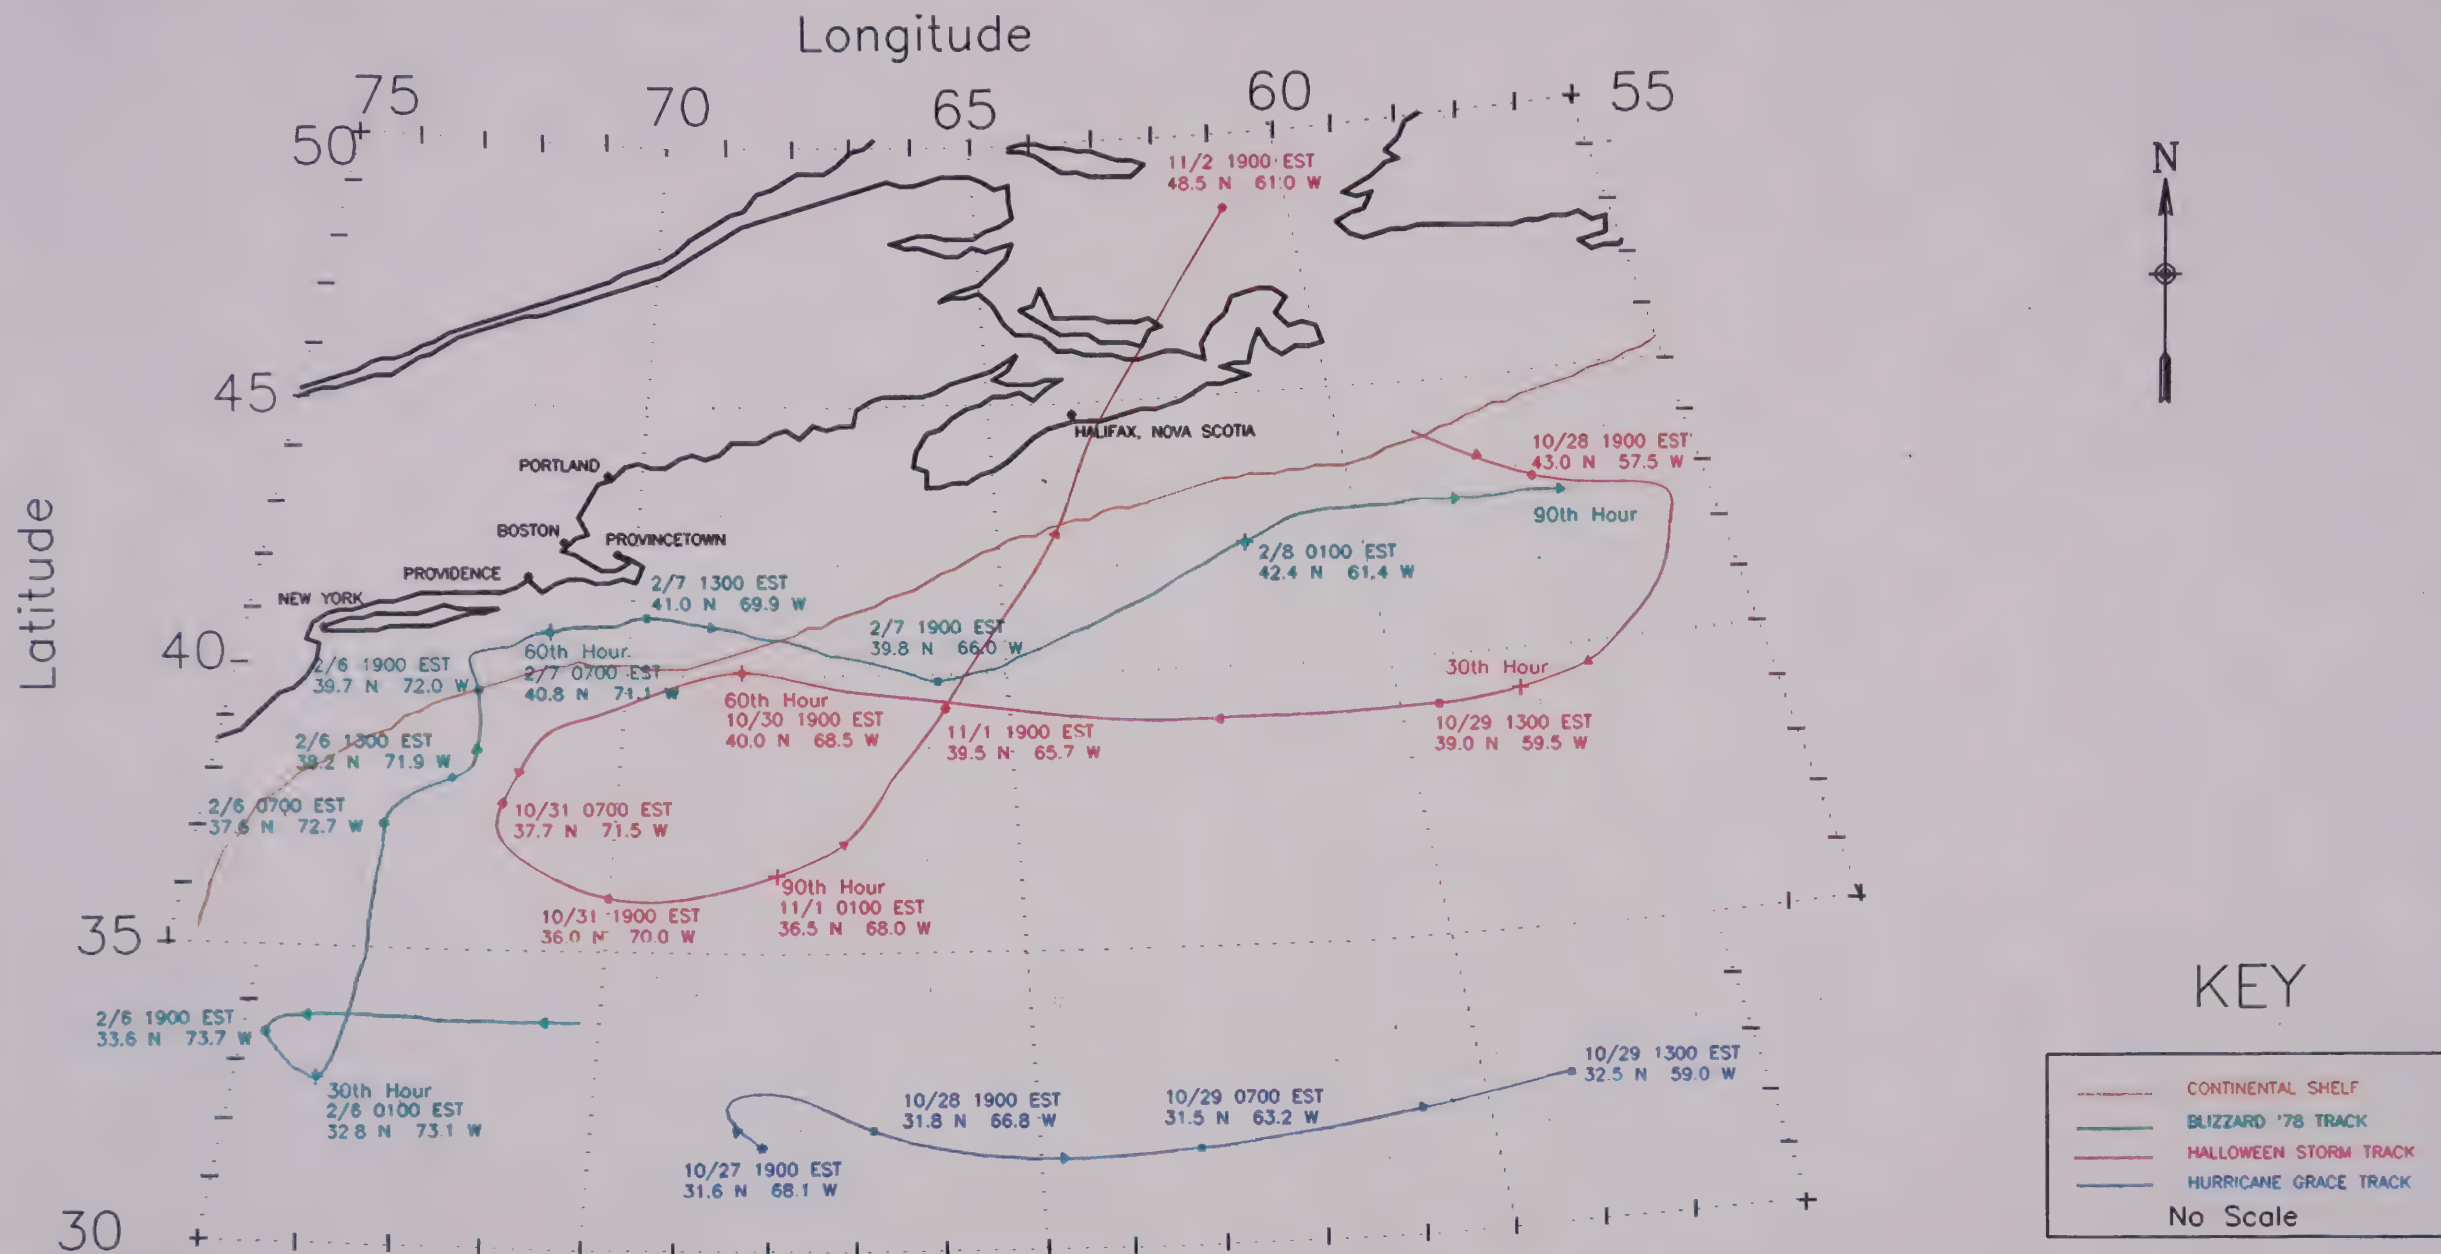 Longitude
75
70
65
60
55
50
45
40
35
30
Latitude
N
11/2 1900 EST
48.5 N 61.0 W
HALIFAX, NOVA SCOTIA
PORTLAND
BOSTON
PROVINCETOWN
PROVIDENCE
NEW YORK
10/28 1900 EST
43.0 N 57.5 W
90th Hour
2/8 0100 EST
42.4 N 61.4 W
2/7 1300 EST
41.0 N 69.9 W
2/7 1900 EST
39.8 N 66.0 W
2/6 1900 EST
39.7 N 72.0 W
60th Hour
2/7 0700 EST
40.8 N 71.1 W
30th Hour
10/29 1300 EST
39.0 N 59.5 W
60th Hour
10/30 1900 EST
40.0 N 68.5 W
11/1 1900 EST
39.5 N 65.7 W
2/6 1300 EST
38.2 N 71.9 W
2/6 0700 EST
37.6 N 72.7 W
10/31 0700 EST
37.7 N 71.5 W
90th Hour
11/1 0100 EST
36.5 N 68.0 W
10/31 1900 EST
36.0 N 70.0 W
2/6 1900 EST
33.6 N 73.7 W
30th Hour
2/6 0100 EST
32.8 N 73.1 W
10/27 1900 EST
31.6 N 68.1 W
10/28 1900 EST
31.8 N 66.8 W
10/29 0700 EST
31.5 N 63.2 W
10/29 1300 EST
32.5 N 59.0 W
KEY
CONTINENTAL SHELF
BLIZZARD '78 TRACK
HALLOWEEN STORM TRACK
HURRICANE GRACE TRACK
No Scale